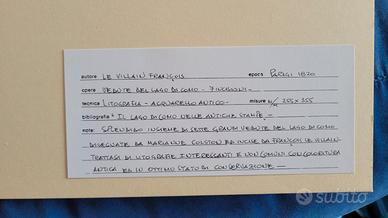 autore LE VILLAIN FRANÇOIS epoca PARIGI 1820
opera VEDUTE DEL LAGO DI COMO - 7 INCISIONI -
tecnica LITOGRAFIA - ACQUARELLO ANTICO - misure 255 x 355
bibliografia IL LAGO DI COMO NELLE ANTICHE STAMPE -
note: SPLENDIDO INSIEME DI SETTE GRANDI VEDUTE DEL LAGO DI COMO
DISEGNATE DA MARIANNE COLSTON ED INCISE DA FRANÇOIS LE VILLAIN -
TRATTASI DI LITOGRAFIE INTERESSANTI E NON COMUNI CON COLORITURA
ANTICA ED IN OTTIMO STATO DI CONSERVAZIONE -
subito